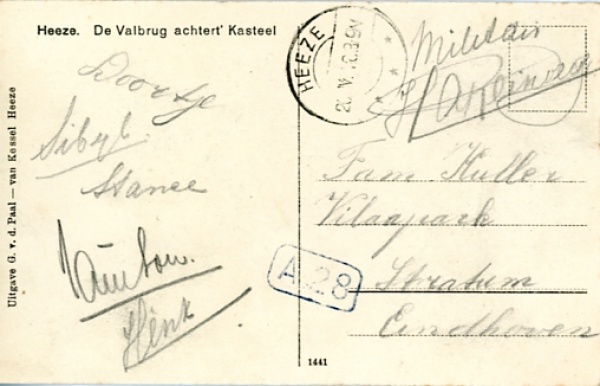 Heeze. De Valbrug achtert' Kasteel
HEEZE
Militair
Doortje
Sibyl.
Stance
Henk
Uitgave G. v. d. Paal — van Kessel Heeze
A 28
Fam Kuller
Villapark
Stratum
Eindhoven
1441